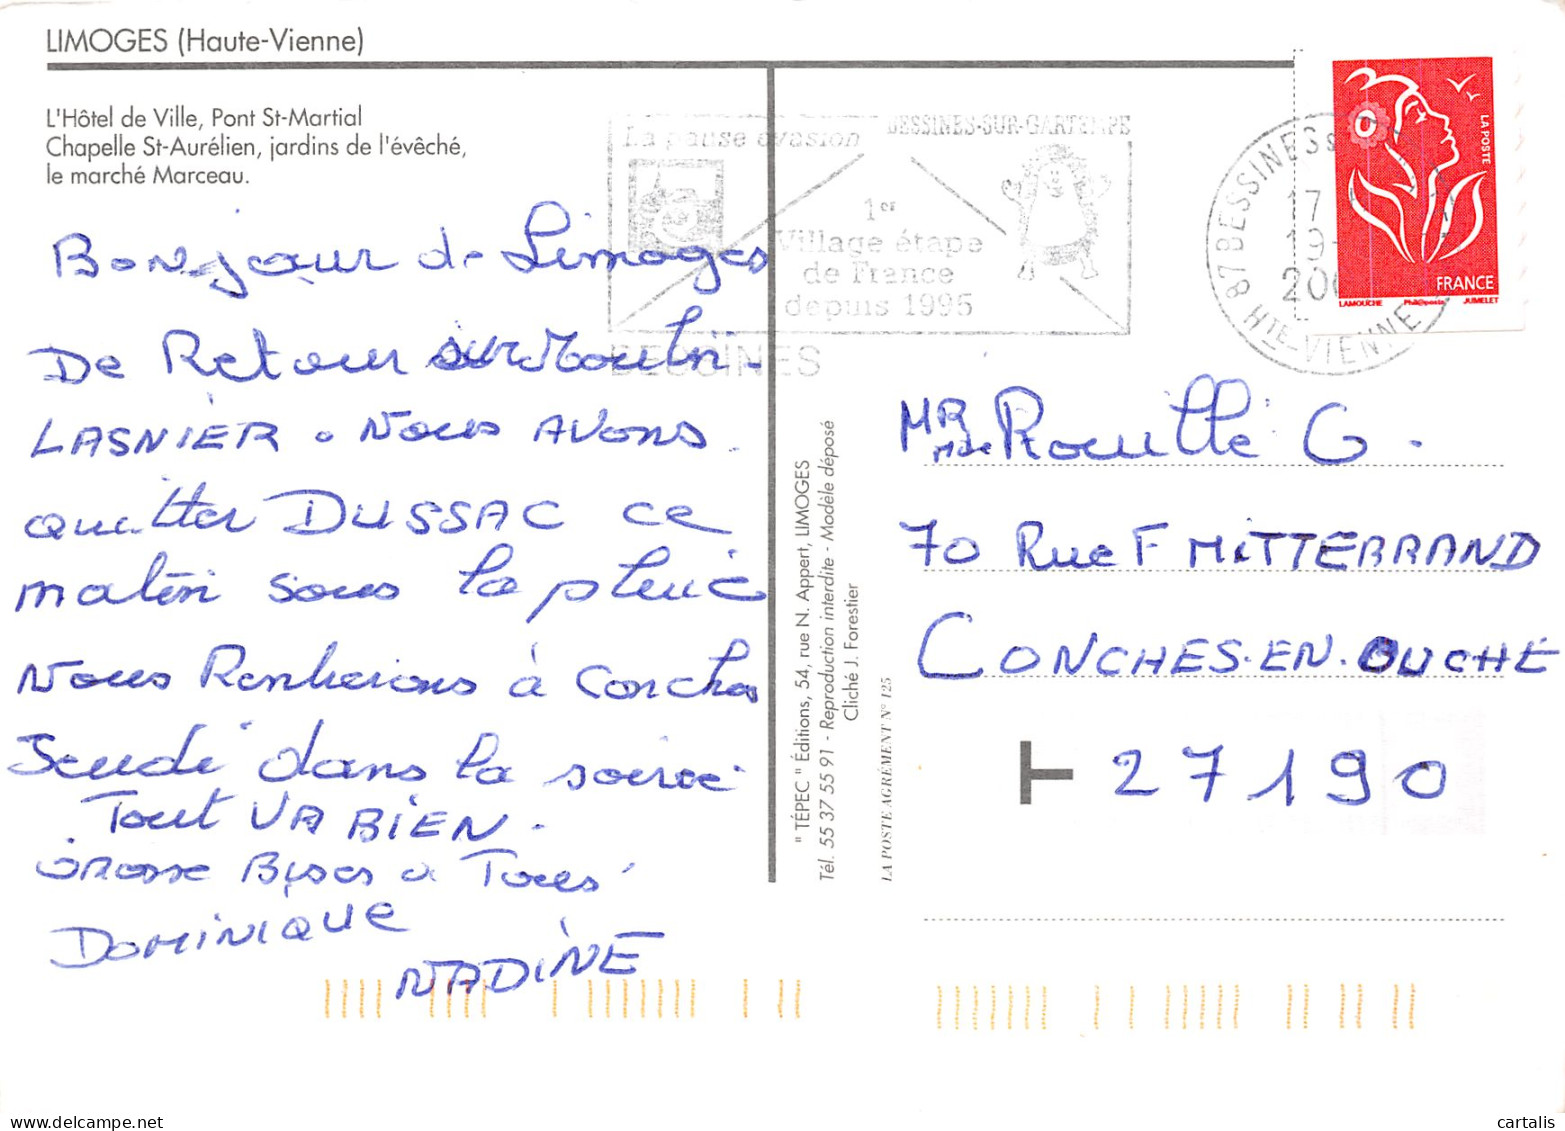 LIMOGES (Haute-Vienne)
L'Hôtel de Ville, Pont St-Martial
Chapelle St-Aurélien, jardins de l'évêché,
le marché Marceau.
Bonjour de Limoges
De Retour sur Moulin
LASNIER. Nous AVONS
quitter DUSSAC ce
matin sous la pluie
Nous Rentrerons à Conches
Jeudi dans la soirée
Tout VA BIEN.
GROSSE Bises a Tous
DOMINIQUE
NADINE
La pause évasion
BESSINES-SUR-GARTEMPE
1er
Village étape
de France
depuis 1995
BESSINES
87 BESSINES S
17
19
200
HTE-VIENNE
LA POSTE
FRANCE
LAMOUCHE Phil@poste JUMELET
" TÉPEC " Éditions, 54, rue N. Appert, LIMOGES
Tél. 55 37 55 91 - Reproduction interdite - Modèle déposé
Cliché J. Forestier
LA POSTE AGRÉMENT N° 125
MR Mde Rouillé G.
70 Rue F MITTERRAND
CONCHES.EN.OUCHE
T 27190
cartalis